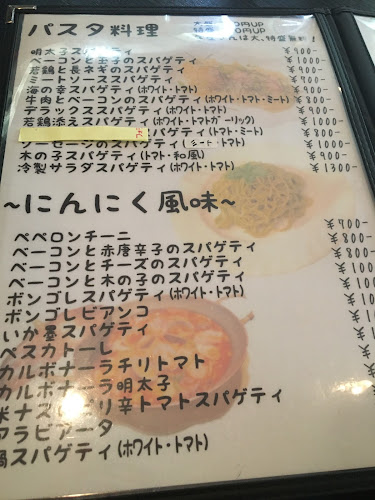 パスタ料理
UP
UP
は大、特盛無料!
明太子スパゲティ ¥900-
ベーコンと玉子のスパゲティ ¥1000-
若鶏と長ネギのスパゲティ ¥900-
ミートソーススパゲティ ¥800-
海の幸スパゲティ(ホワイト・トマト)
牛肉とベーコンのスパゲティ(ホワイト・トマト・ミート)
デラックススパゲティ(ホワイト・トマト)
若鶏添えスパゲティ(ホワイト・トマトガーリック) ¥1000-
スパゲティ(トマト・ミート) ¥800-
ソーセージのスパゲティ(ミート・トマト) ¥800-
木の子スパゲティ(トマト・和風) ¥900-
冷製サラダスパゲティ(ホワイト・トマト) ¥1300-
~にんにく風味~
ペペロンチーニ ¥700-
ベーコンと赤唐辛子のスパゲティ ¥800-
ベーコンとチーズのスパゲティ
ベーコンと木の子のスパゲティ
ボンゴレスパゲティ(ホワイト・トマト)
ボンゴレビアンコ
いか墨スパゲティ
ペスカトーレ
カルボナーラチリトマト
カルボナーラ明太子
米ナス ピリ辛トマトスパゲティ
アラビアータ
スパゲティ(ホワイト・トマト)